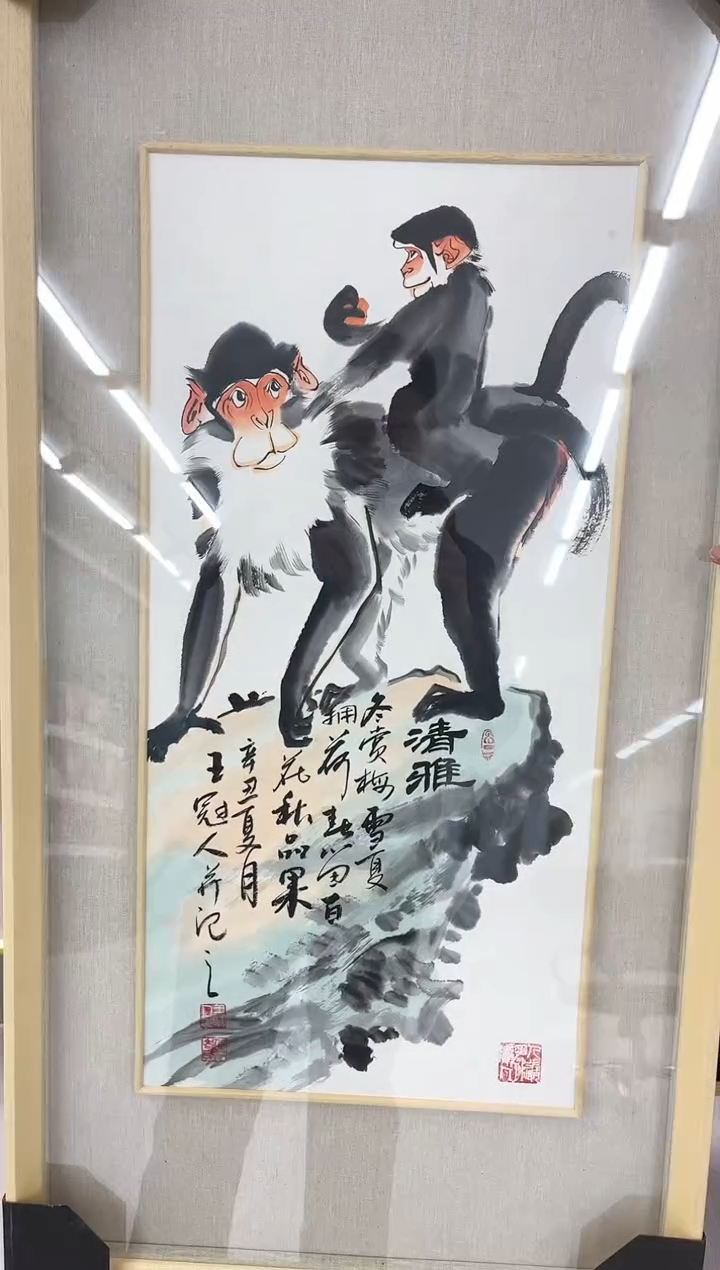 清雅
冬赏梅雪夏
拥荷春留百
花秋品果
辛丑夏月
王冠人并记之